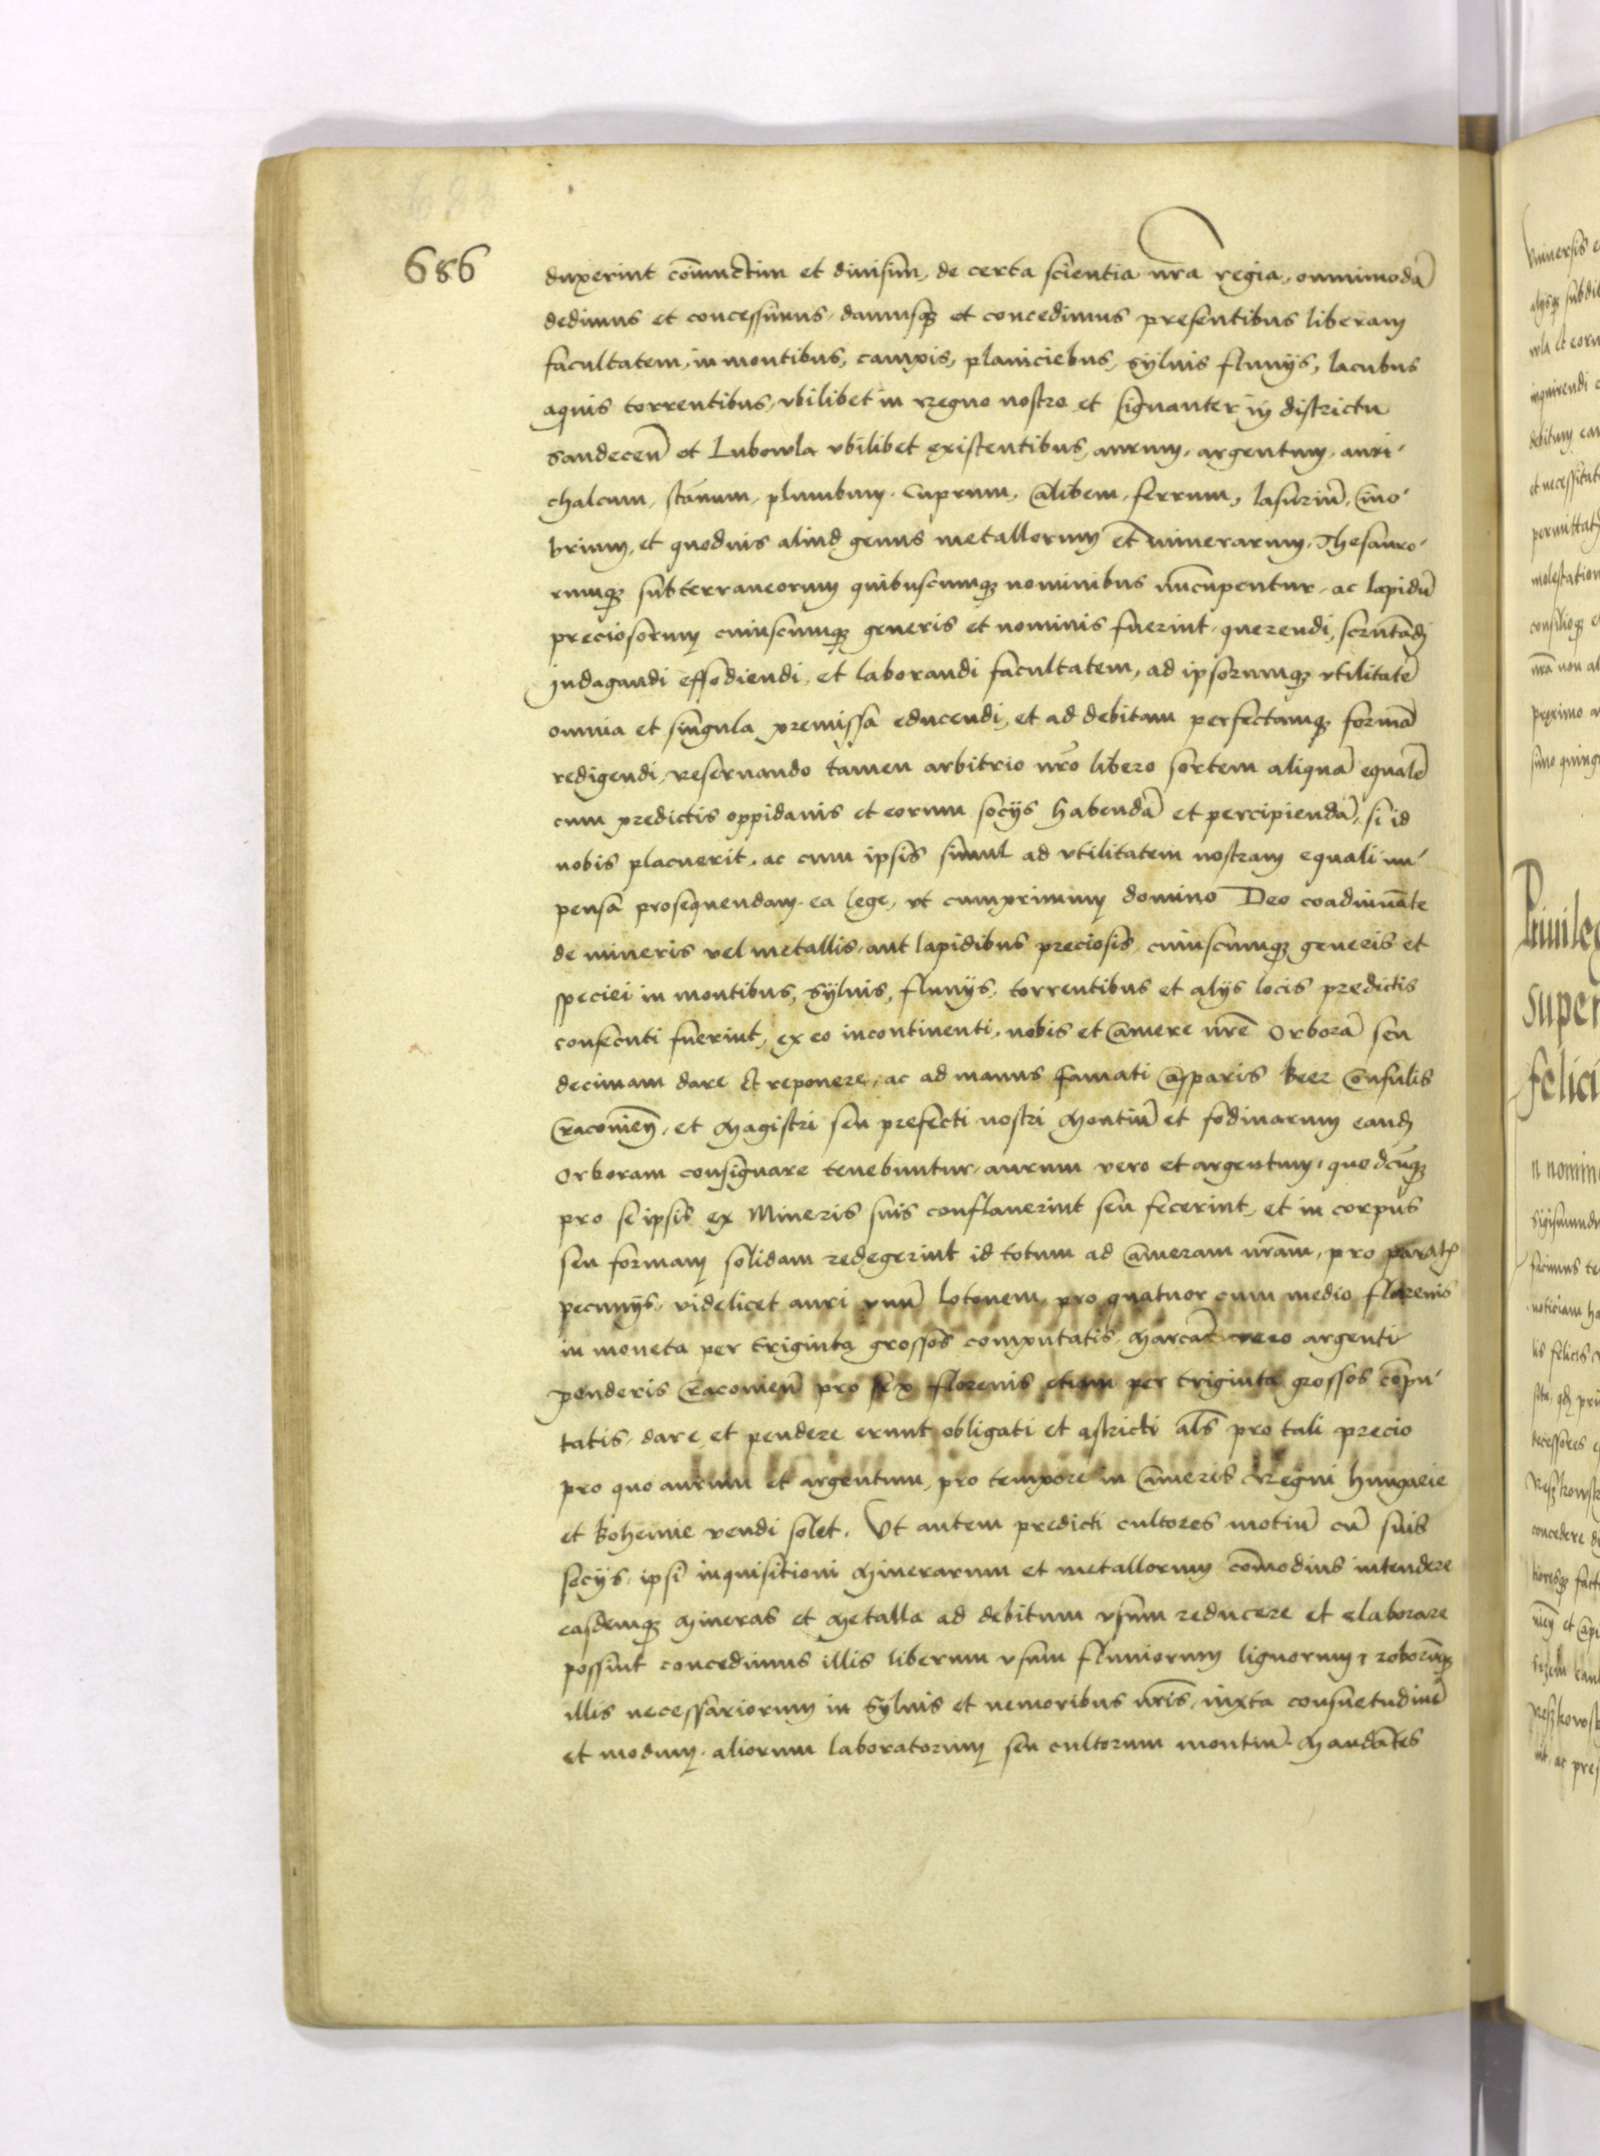 686
duxerint coniunctim et diuisim, de certa scientia nr̃a regia, omnimodã
dedimus et concessimus, damusq₃ et concedimus presentibus liberam
facultatem, in montibus, campis, planiciebus, syluis fluuijs, lacubus
aquis torrentibus, vbilibet in regno nostro et signanter in districtu
Sandeceñ et Lubowla vbilibet existentibus, aurum, argentum, auri-
chalcum, stãnum, plumbum, cuprum, calibem, ferrum, lasuriũ, cino-
brium, et quoduis aliud genus metallorum et minerarum, Thesauro-
rumq₃ subterraneorum quibuscumq₃ nominibus nũcupentur, ac lapidũ
preciosorum cuiuscumq₃ generis et nominis fuerint, querendi, scrutãdj
Indagandi effodiendi, et laborandi facultatem, ad ipsorumq₃ vtilitatẽ
omnia et singula premissa educendi, et ad debitam perfectamq₃ formã
redigendi, reseruando tamen arbitrio nr̃o libero sortem aliquã equalẽ
cum predictis oppidanis et eorum socijs habendã et percipiendã, si id
nobis placuerit, ac cum ipsis simul ad vtilitatem nostram equali im-
pensa prosequendam, ea lege, vt cumprimum domino Deo coadiuuãte
de mineris vel metallis, aut lapidibus preciosis cuiuscumq₃ generis et
speciei in montibus, syluis, fluuijs, torrentibus et alijs locis predictis
consecuti fuerint, ex eo incontinenti, nobis et Camere nr̃e Orborã seu
decimam dare et reponere, ac ad manus famati Casparis Beer Consulis
Cracouieñ, et Magistri seu prefecti nostri Montiũ et fodinarum eandẽ
Orboram consignare tenebuntur, aurum vero et argentum, quodcũq₃
pro se ipsis ex Mineris suis conflauerint seu fecerint, et in corpus
seu formam solidam redegerint id totum ad Cameram nr̃am, pro paratis
pecunijs, videlicet auri vnũ lotonem pro quatuor cum medio florenis
in moneta per triginta grossos computatis, Marcã vero argenti
ponderis Cracouieñ pro sex florenis etiam per triginta grossos cõpu-
tatis, dare et pendere erunt obligati et astricti als̃ pro tali precio
pro quo aurum et argentum, pro tempore in Cameris Regni Hungarie
et Bohemie vendi solet. Vt autem predicti cultores motiũ cũ suis
socijs, ipsi inquisitioni Minerarum et metallorum cõmodius intendere
easdemq₃ Mineras et Metalla ad debitum vsum reducere et elaborare
possint concedimus illis liberum vsum fluuiorum lignorum, roborũq₃
illis necessariorum in Syluis et nemoribus nr̃is, iuxta consuetudinẽ
et modum aliorum laboratorum seu cultorum montiũ. Mandãtes